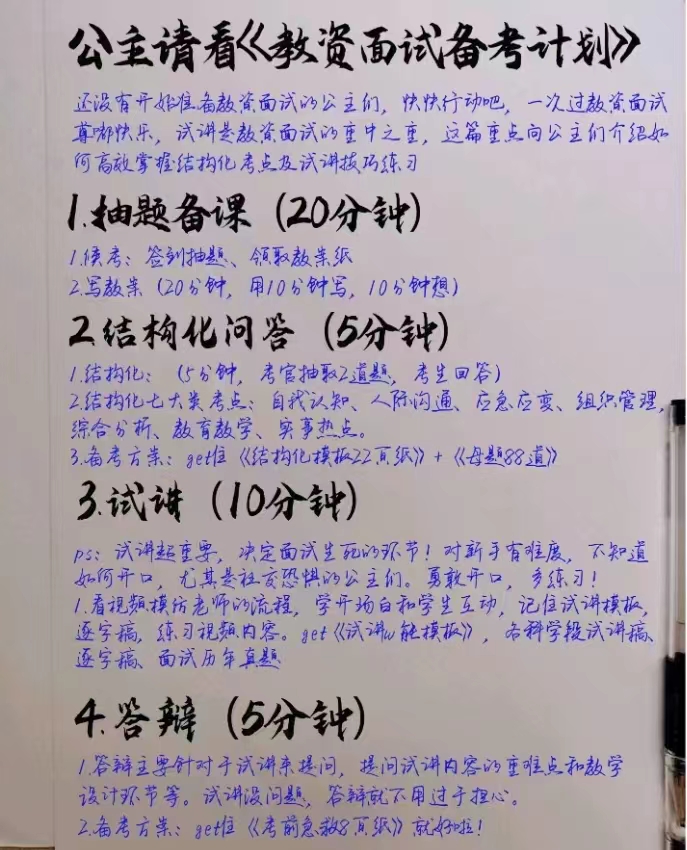 公主请看《教资面试备考计划》
还没有开始准备教资面试的公主们，快快行动吧，一次过教资面试
尊嘟快乐，试讲是教资面试的重中之重，这篇重点向公主们介绍如
何高效掌握结构化考点及试讲技巧练习
1.抽题备课（20分钟）
1.候考：签到抽题、领取教案纸
2.写教案（20分钟，用10分钟写，10分钟想）
2.结构化问答（5分钟）
1.结构化：（5分钟，考官抽取2道题，考生回答）
2.结构化七大类考点：自我认知、人际沟通、应急应变、组织管理，
综合分析、教育教学、实事热点。
3.备考方案：get住《结构化模板22页纸》+《母题88道》
3.试讲（10分钟）
ps：试讲超重要，决定面试生死的环节！对新手有难度，不知道
如何开口，尤其是社交恐惧的公主们。勇敢开口，多练习！
1.看视频模仿老师的流程，学开场白和学生互动，记住试讲模板，
逐字稿，练习视频内容。get《试讲w能模板》，各科学段试讲稿
逐字稿、面试历年真题
4.答辩（5分钟）
1.答辩主要针对于试讲来提问，提问试讲内容的重难点和教学
设计环节等。试讲没问题，答辩就不用过于担心。
2.备考方案：get住《考前急救8页纸》就好啦！